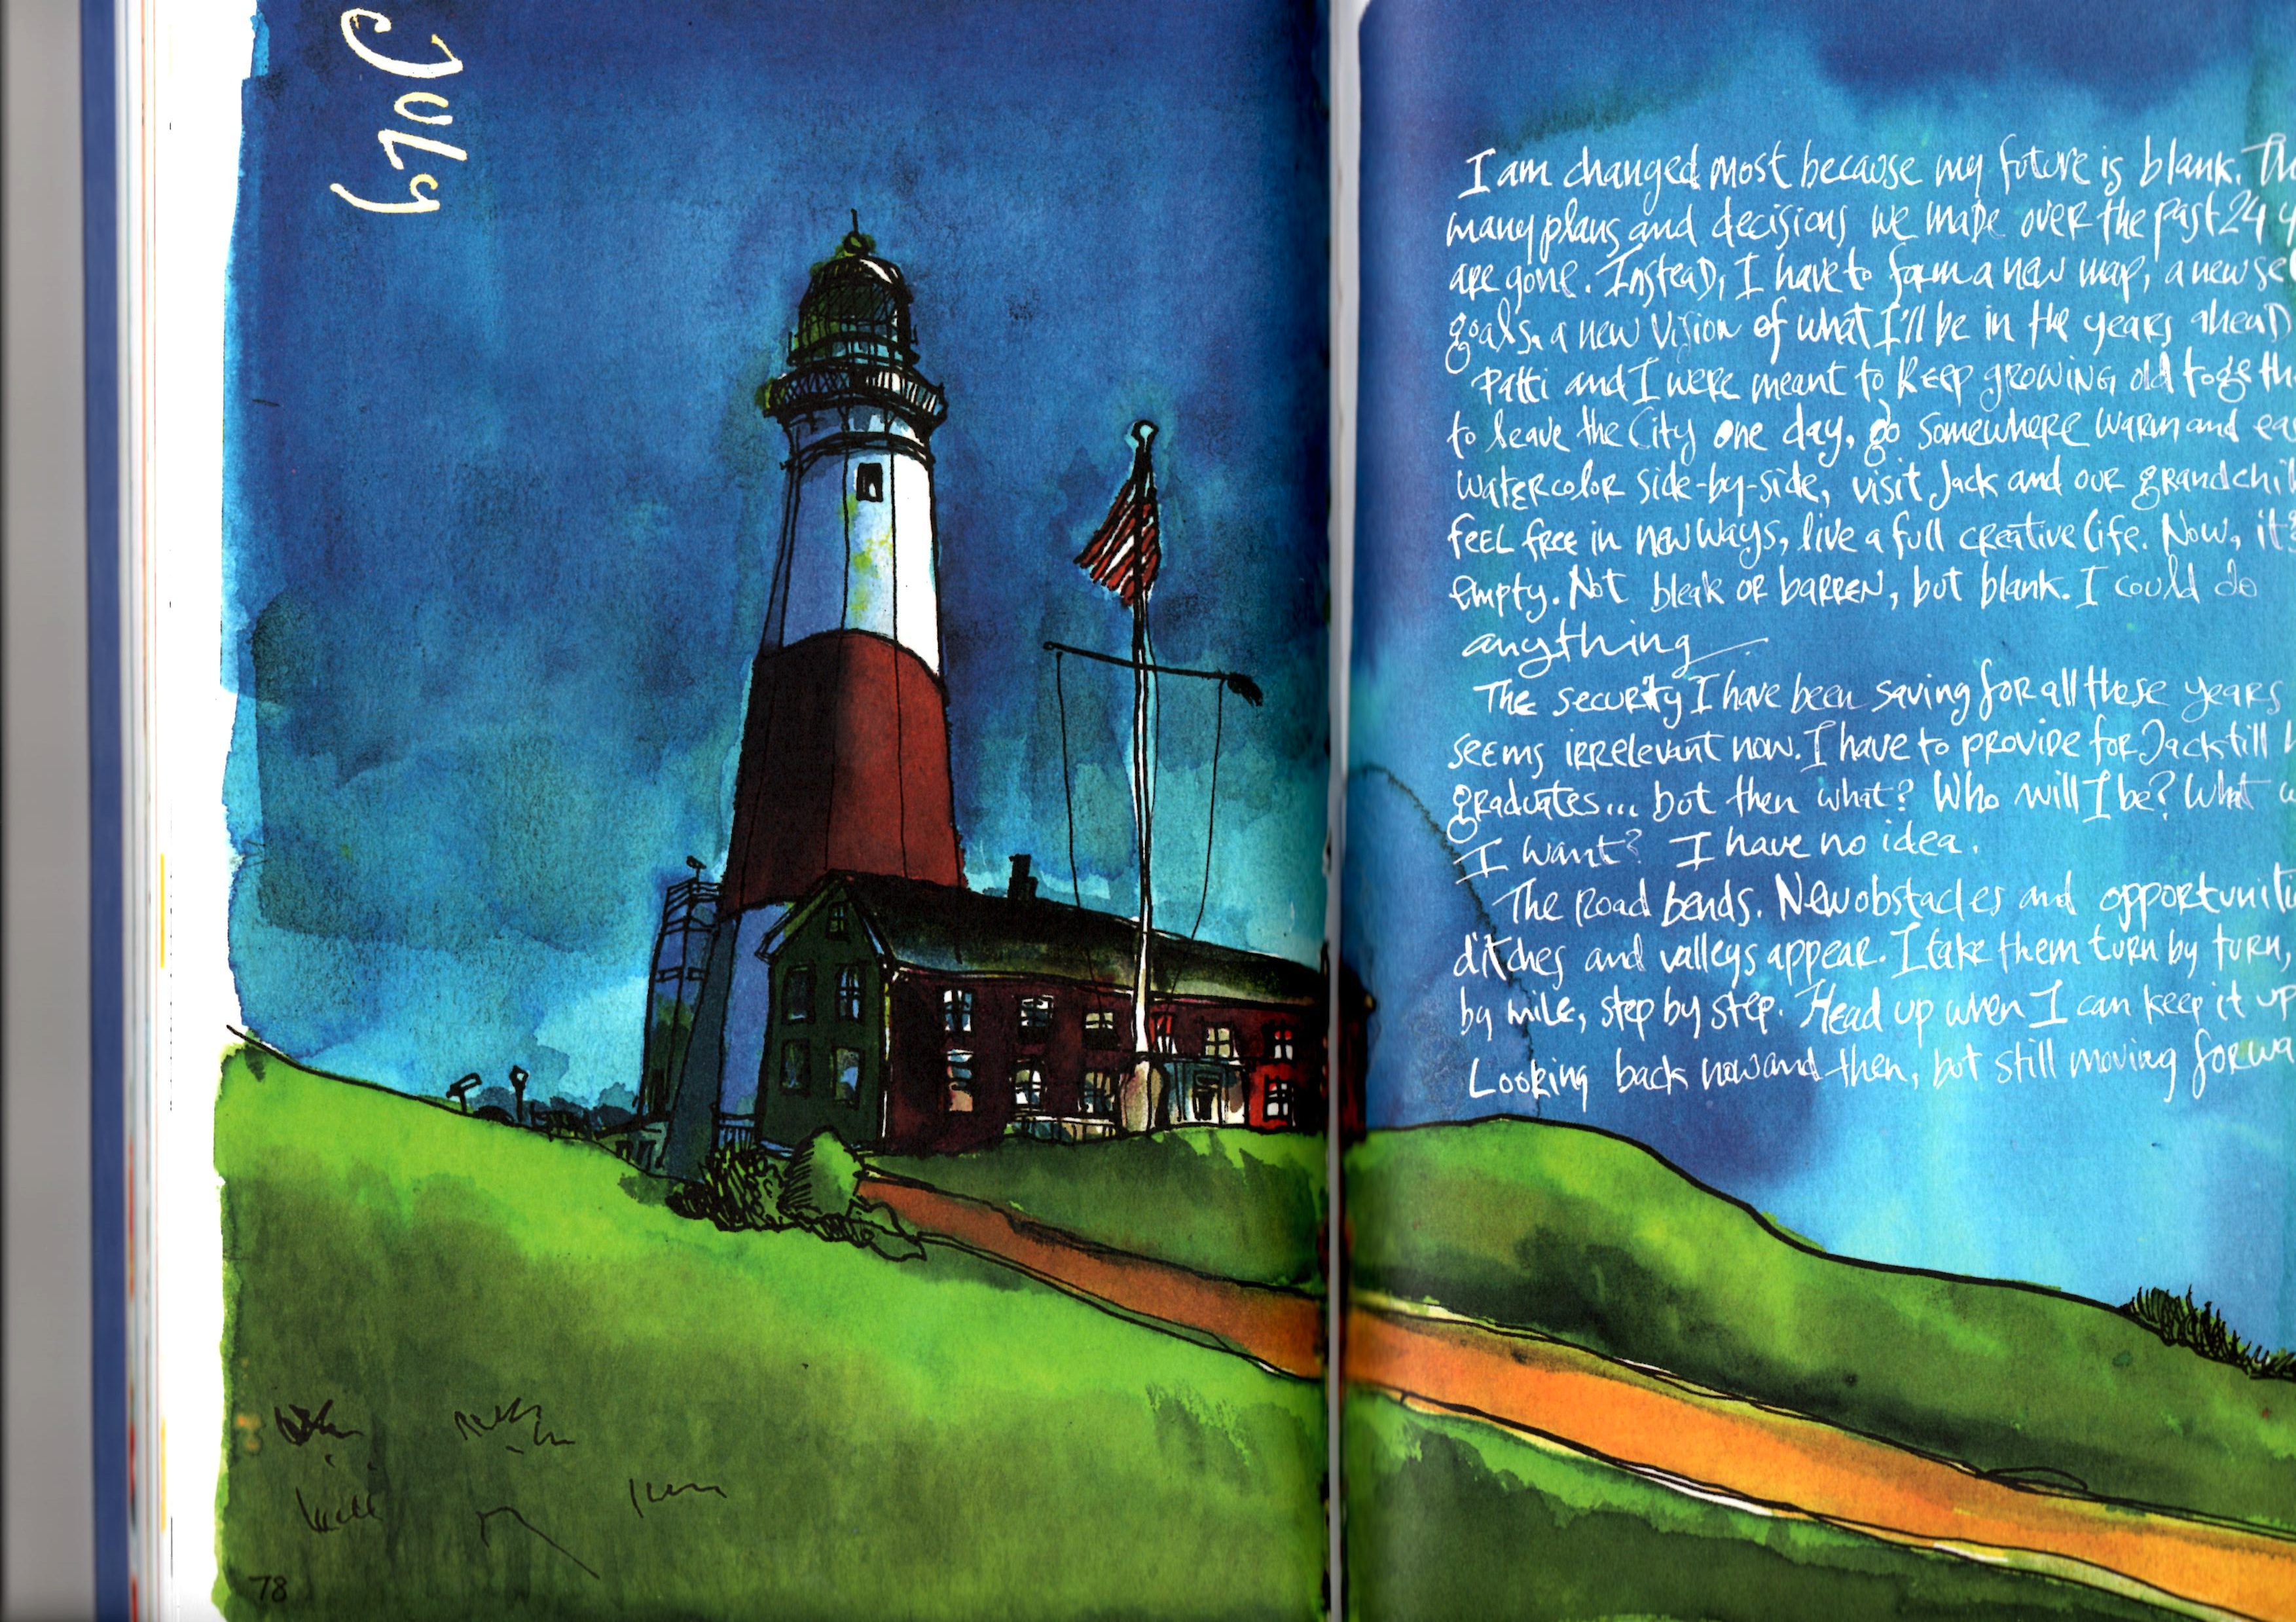 JULY
I am changed most because my future is blank. The
many plans and decisions we made over the past 24 y
are gone. Instead, I have to form a new map, a new set
goals, a new vision of what I'll be in the years ahead
Patti and I were meant to keep growing old togeth
to leave the City one day, go somewhere warm and eas
watercolor side-by-side, visit Jack and our grandchil
feel free in new ways, live a full creative life. Now, it's
empty. Not bleak or barren, but blank. I could do
anything.
The security I have been saving for all these years
seems irrelevant now. I have to provide for Jack till h
graduates... but then what? Who will I be? What w
I want? I have no idea.
The road bends. New obstacles and opportuniti
ditches and valleys appear. I take them turn by turn,
by mile, step by step. Head up when I can keep it up
Looking back now and then, but still moving forwa
78